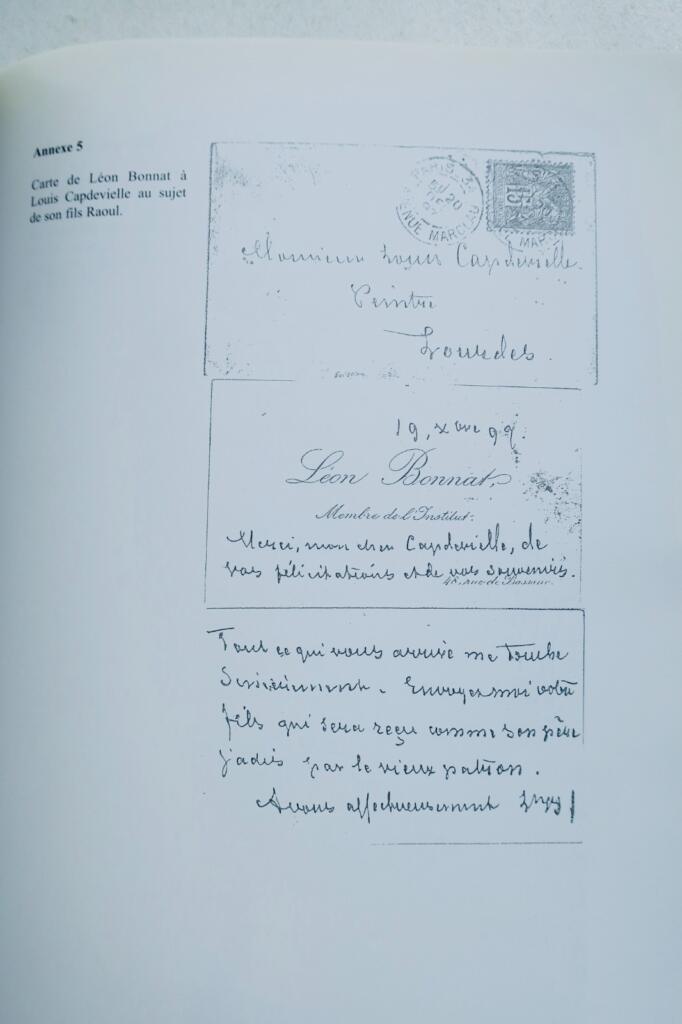 Annexe 5
Carte de Léon Bonnat à
Louis Capdevielle au sujet
de son fils Raoul.
PARIS
20
AVENUE MARCEAU
15
Monsieur Louis Capdevielle.
Peintre
Lourdes.
19, xbre 99.
Léon Bonnat,
Membre de l'Institut.
Merci, mon cher Capdevielle, de
vos félicitations et de vos souvenirs.
48, rue de Bassano.
Tout ce qui vous arrive me touche
Sincèrement. Envoyez moi votre
fils qui sera reçu comme son père
jadis par le vieux patron.
A vous affectueusement